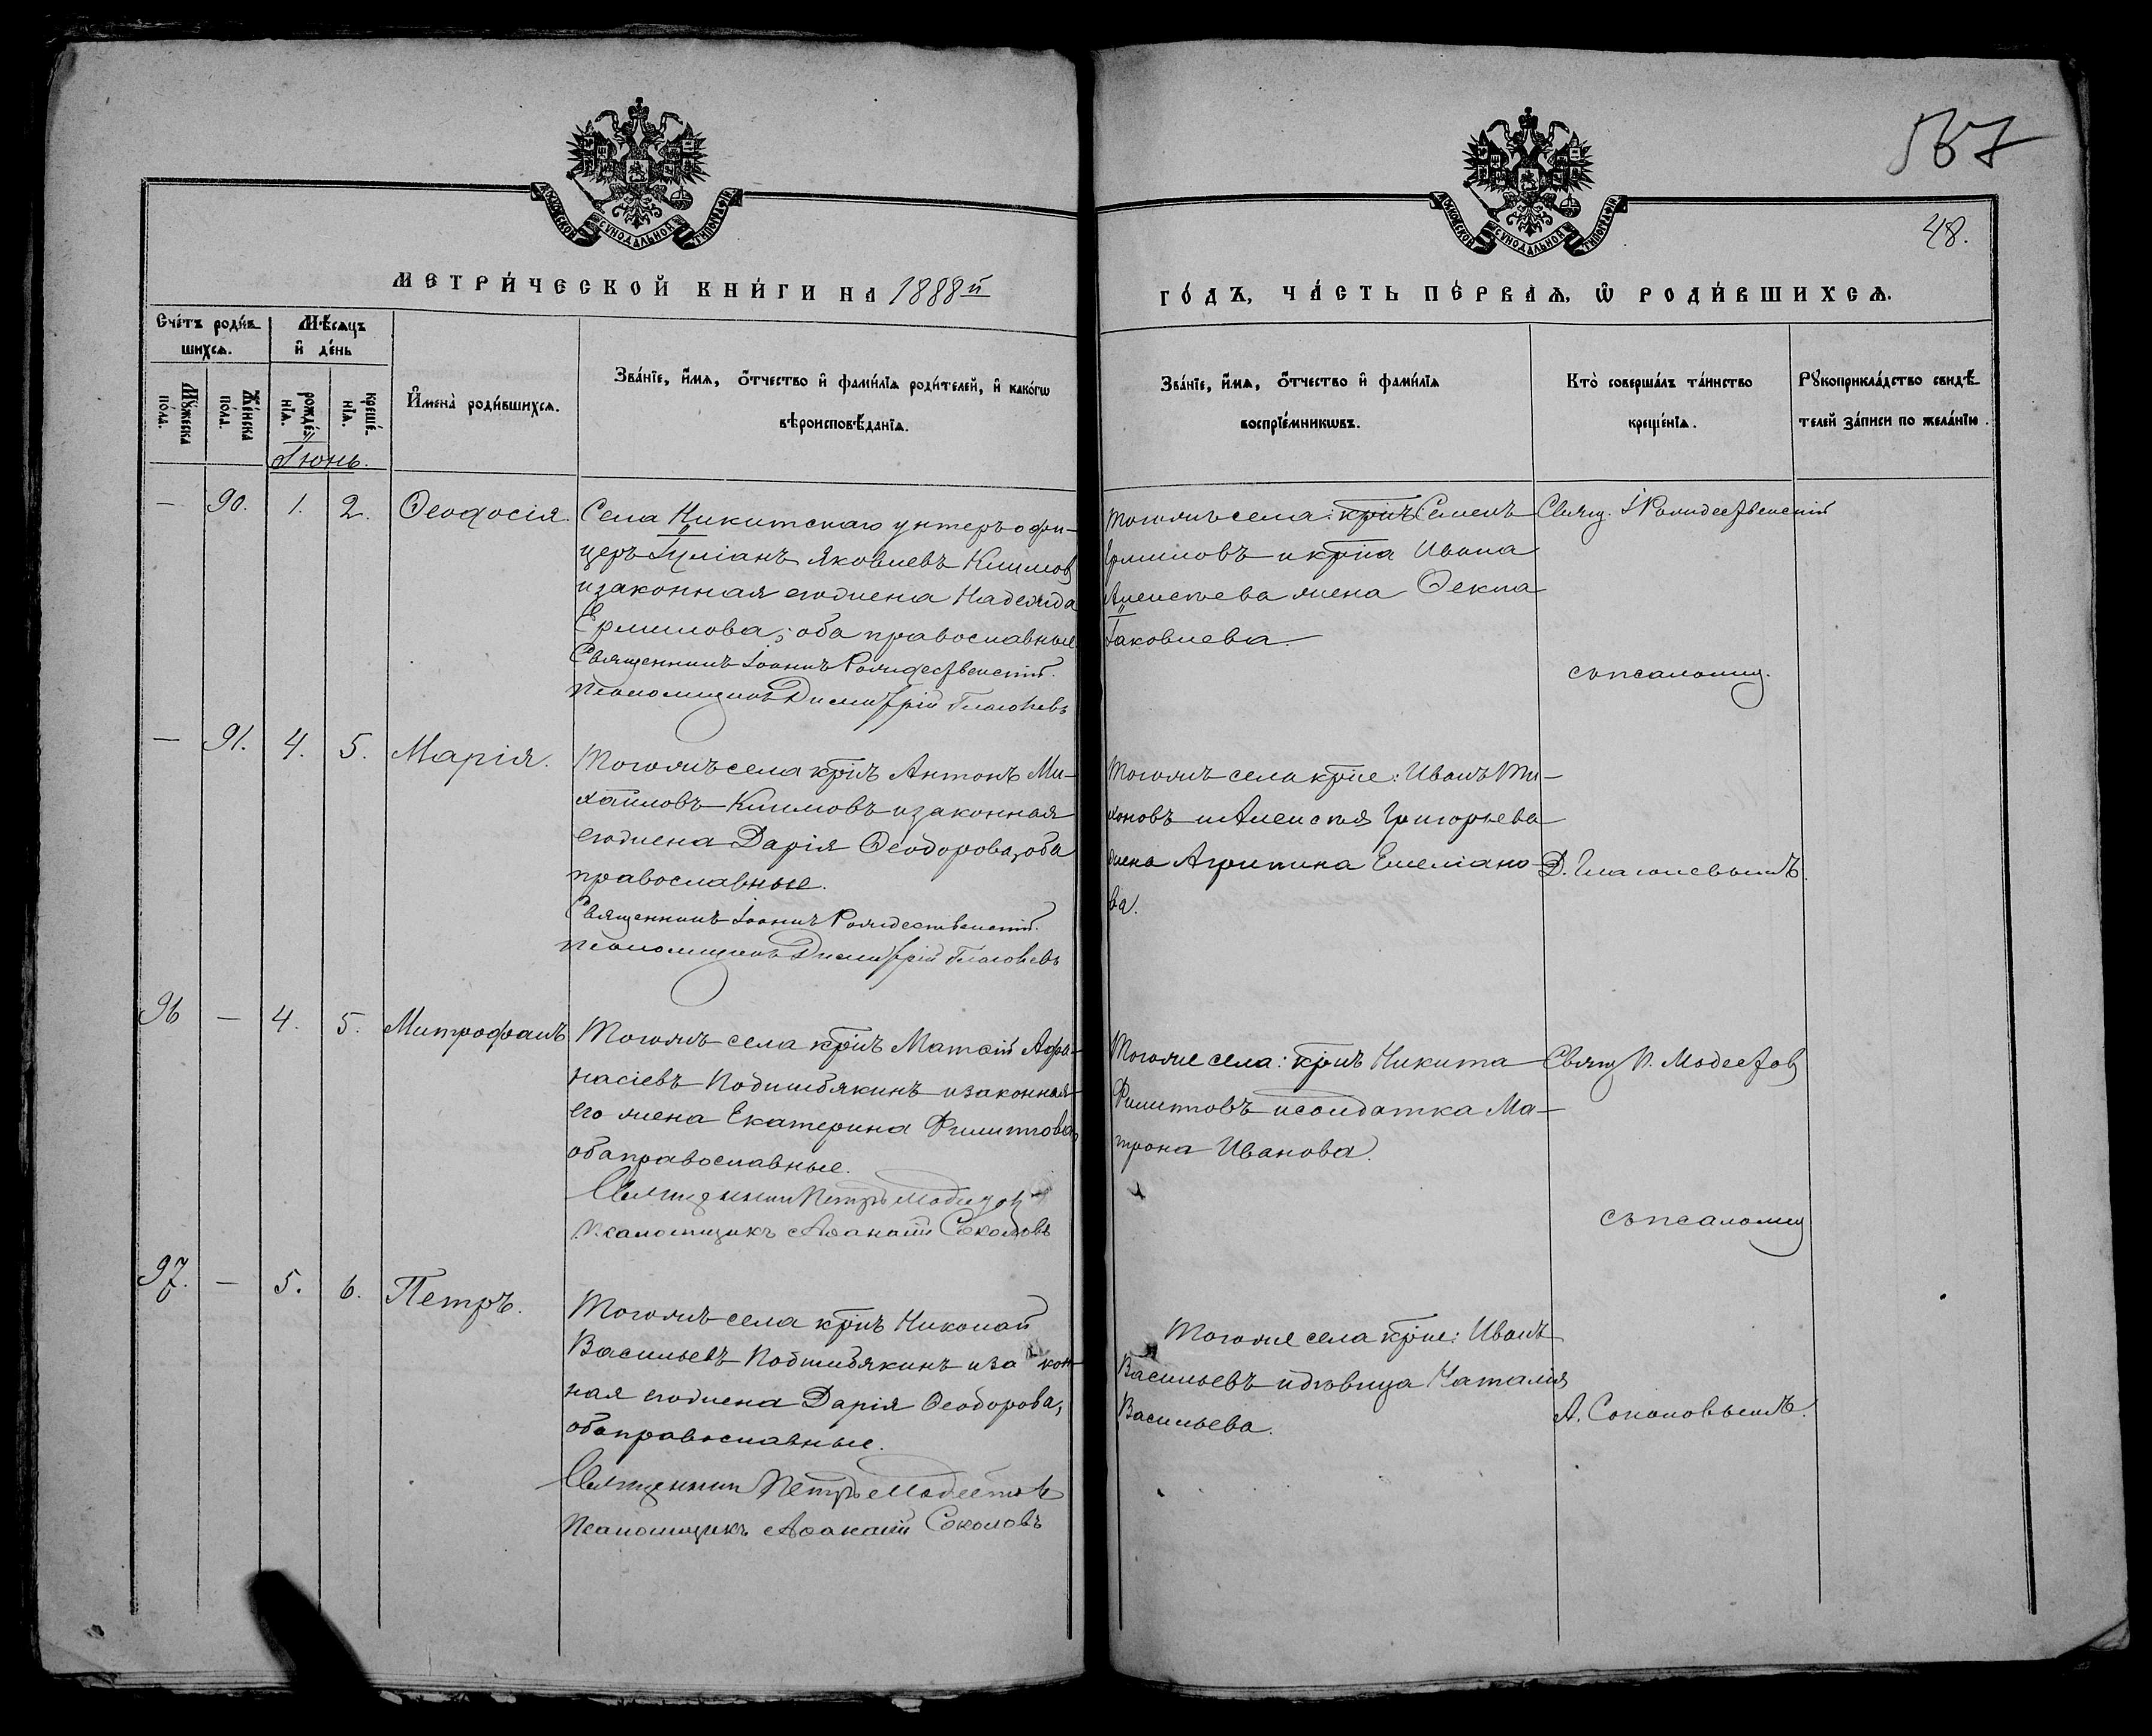 567
48.
МОСКОВСКОЙ СѴНОДАЛЬНОЙ ТИПОГРАФІИ
МОСКОВСКОЙ СѴНОДАЛЬНОЙ ТИПОГРАФІИ
МЕТРИ́ЧЕСКОЙ КНИ́ГИ НА 1888й
ГО́ДЪ, ЧА́СТЬ ПЕ́РВАѦ, Ѡ РОДИ́ВШИХСѦ.
Сче́тъ роди́в-
шихсѧ.
Мѣ́сѧцъ
и҆ де́нь
Мꙋ́жеска по́ла.
Же́нска по́ла.
рожде́нїѧ.
креще́нїѧ.
І҆мена̀ роди́вшихсѧ.
Зва́нїе, и҆́мѧ, ѻ҆́тчество и҆ фами́лїѧ роди́телей, и҆ како́гѡ
вѣроисповѣ́данїѧ.
Зва́нїе, и҆́мѧ, ѻ҆́тчество и҆ фами́лїѧ
воспрїе́мникѡвъ.
Кто̀ соверша́лъ та́инство
креще́нїѧ.
Рꙋкоприкла́дство свидѣ́-
телей за́писи по жела́нїю.
Іюнь.
— 90. 1. 2. Ѳеодосія.
Села Никитскаго унтеръ офи-
церъ Іуліанъ Яковлевъ Климов
и законная его жена Надежда
Ермилова; оба православные.
Священникъ Іоаннъ Рождественскій.
Псаломщикъ Димитрій Глаголевъ
Тогожъ села: кр̅нъ Семенъ
Ермиловъ и кр̅на Ивана
Алексѣева жена Ѳекла
Іаковлева.
Свящ. І Рождественскій
съ псаломщ.
— 91. 4. 5. Марія.
Тогожъ села кр̅нъ Антонъ Ми-
хаиловъ Климовъ и законная
его жена Дарія Ѳеодорова, оба
православные.
Священникъ Іоаннъ Рождественскій.
Псаломщикъ Димитрій Глаголевъ
Тогожъ села кр̅не: Иванъ Ти-
хоновъ и Алексѣя Григорьева
жена Агрипина Емеліано-
ва.
Д. Глаголевымъ.
96 — 4. 5. Митрофанъ
Тогожъ села кр̅нъ Матвѣй Афа-
насіевъ Подшибякинъ и законная
его жена Екатерина Филиппова,
оба православные.
Священникъ Петръ Модестов
Псаломщикъ Аѳанасій Соколовъ
Тогоже села: кр̅нъ Никита
Филипповъ и солдатка Ма-
трона Иванова.
Свящ П. Модестов
съ псаломщ
97. — 5. 6. Петръ.
Тогожъ села кр̅нъ Николай
Васильевъ Подшибякинъ и за кон-
ная его жена Дарія Ѳеодорова,
оба православные.
Священникъ Петръ Модестовъ
Псаломщикъ Аѳанасій Соколовъ
Тогоже села кр̅не: Иванъ
Васильевъ и дѣвица Наталія
Васильева.
А. Соколовымъ.